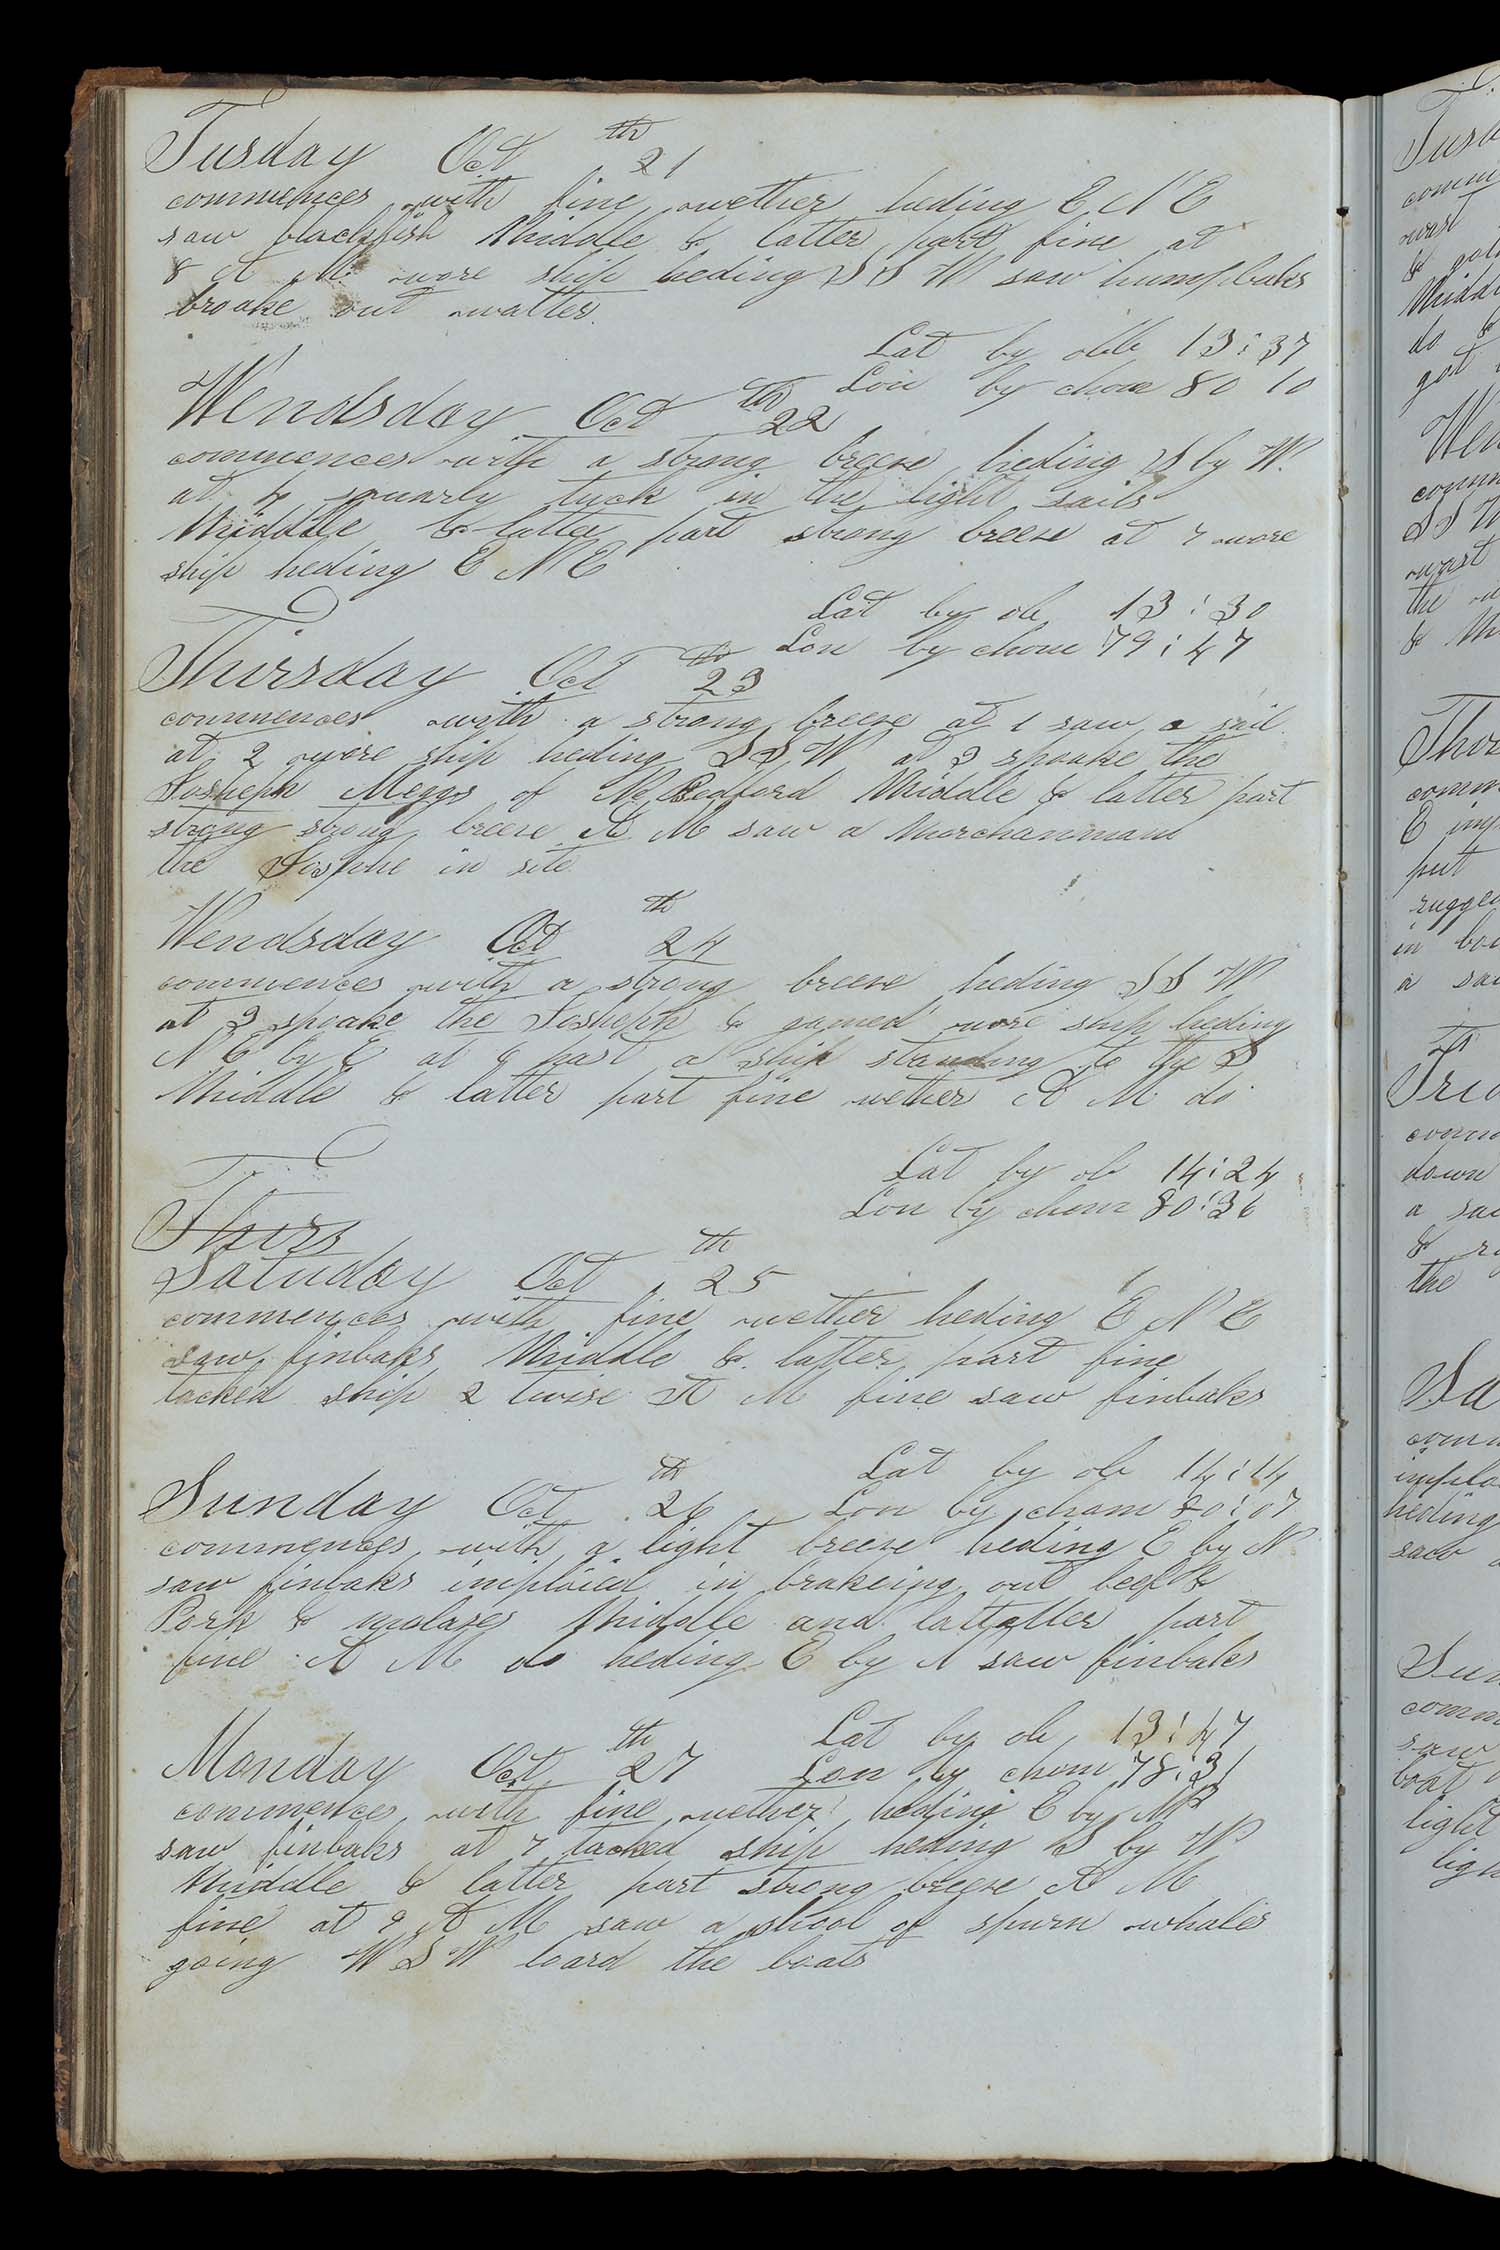 Tusday Oct 21th
commences with fine wether heding E N E
saw blackfish Middle & latter part fine at
8 A M wore ship heding S S W saw humpbaks
broake out watter
Lat by obb 13:37
Lon by chom 80 10
Wendsday Oct 22th
commences with a strong breese heding S by W.
at 4 squarly tuck in the light sails
Middle & latter part strong breese at 7 wore
ship heding E N E
Lat by ob 13:30
Lon by chom 79:47
Thirsday Oct 23th
commences with a strong breese at 1 saw a sail
at 2 wore ship heding S S W at 3 spoake the
Josheph Meggs of N Bedford Middle & latter part
strong strong breese A M saw a Morchanman
the Josphe in site
Wendsday Oct 24th
commences with a strong breese heding S S W
at 3 spoake the Josheph & gamed wore ship heding
N E by E at 6 past a ship standing to the S
Middle & latter part fine wether A M do
Lat by ob 14:24
Lon by chom 80:36
Thirs
Satuday Oct 25th
commences with fine wether heding E N E
saw finbaks Middle & latter part fine
tacked ship 2 twise A M fine saw finbaks
Lat by ob 14:14
Sunday Oct 26th Lon by chom 80:07
commences with a light breese heding E by N
saw finbaks imploied in brakeing out beef &
Pork & molases Middle and lattatter part
fine A M do heding E by N saw finbaks
Lat by ob 13:47
Monday Oct 27th Lon by chom 78:31
commences with fine wether heding E by N
saw finbaks at 7 tacked ship heding S by W
Middle & latter part strong breese A M
fine at 9 A M saw a shool of spurm whales
going W S W loard the boats